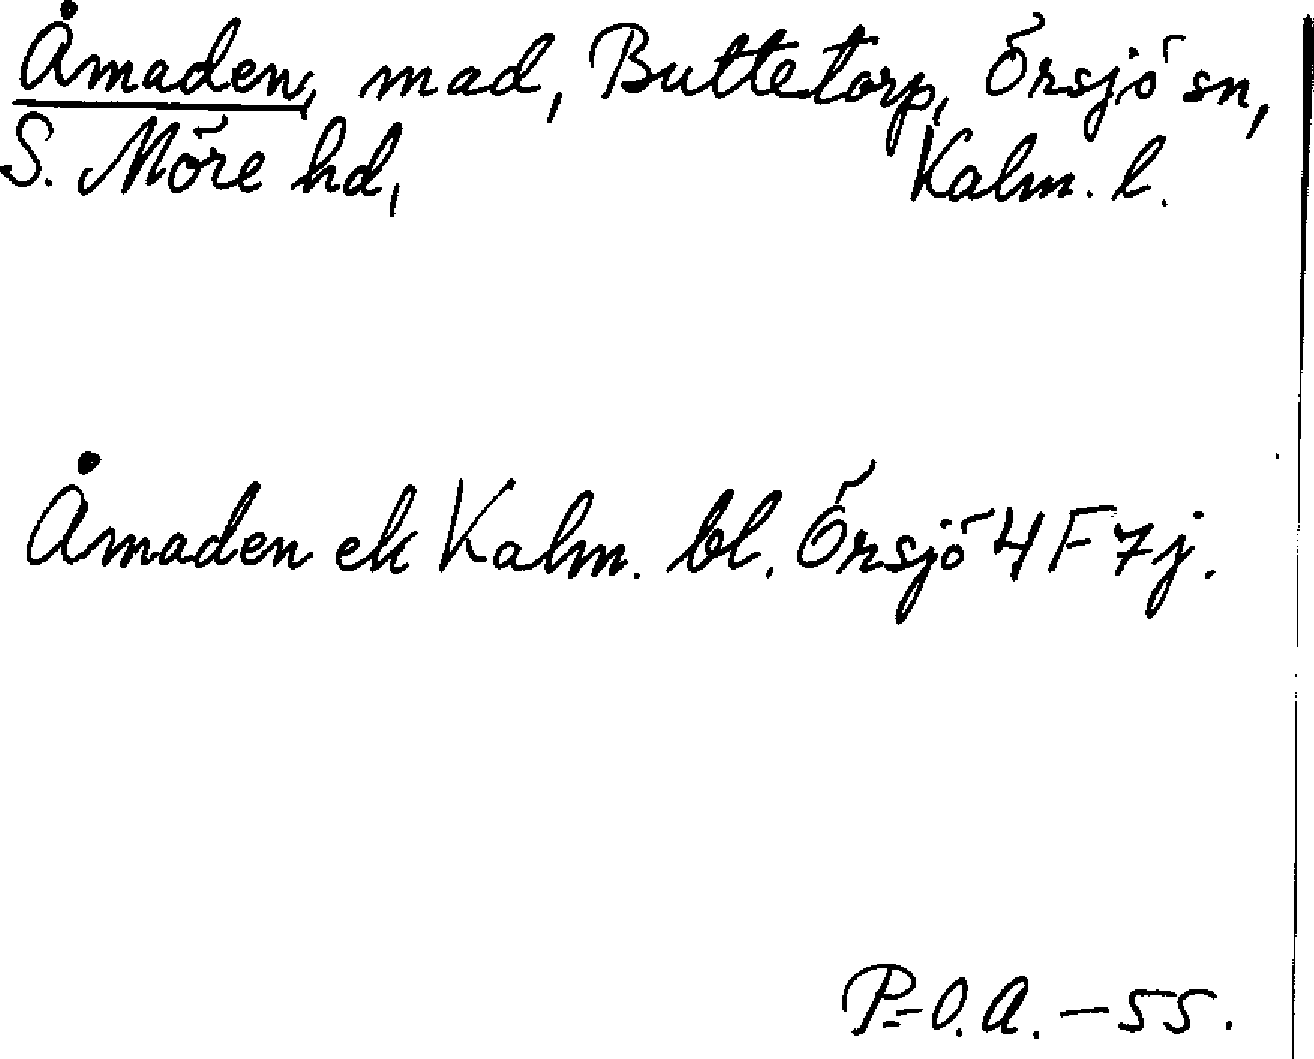 Åmaden, mad, Buttetorp, Örsjö sn,
S. Möre hd, Kalm. l.
Åmaden ek Kalm. bl. Örsjö 4 F 7j.
P-O.A. -55.